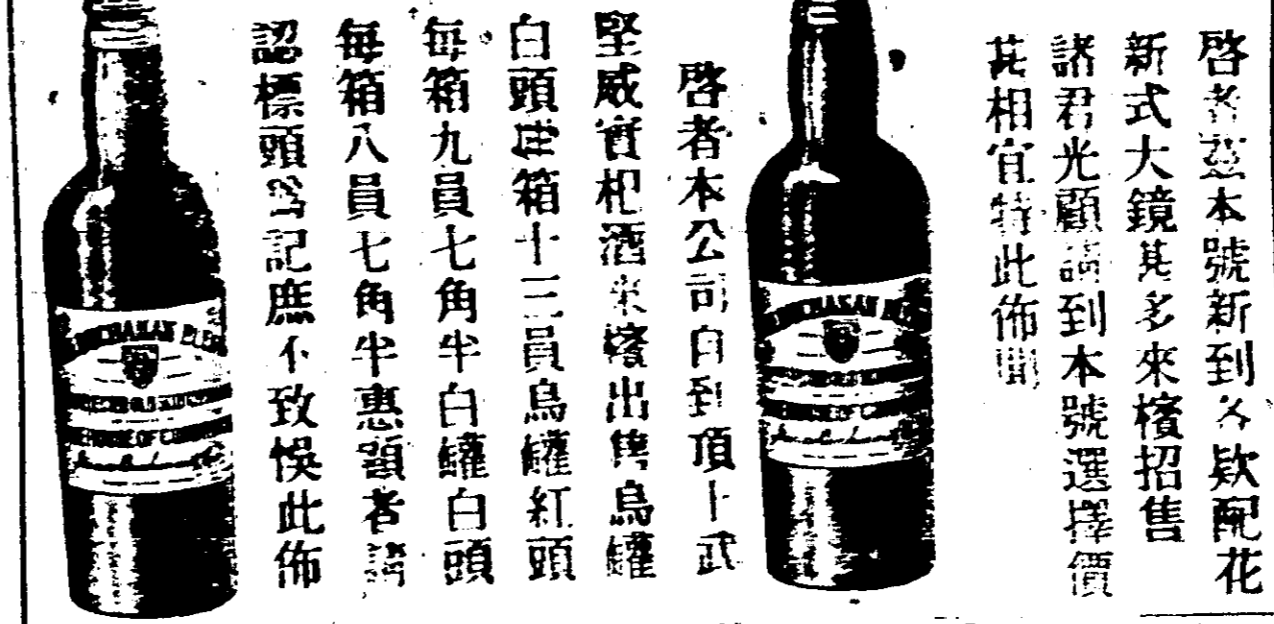 啓者茲本號新到各欵配花
新式大鏡甚多來檳招售
諸君光顧請到本號選擇價
甚相宜特此佈聞
啓者本公司自到頂上武
堅威實杞酒來檳出售烏罐
白頭每箱十三員烏罐紅頭
每箱九員七角半白罐白頭
每箱八員七角半惠顧者請
認標頭爲記庶不致悞此佈
BUCHANAN BLEND
HOUSE OF COMMONS
BUCHANAN BLEND
HOUSE OF COMMONS